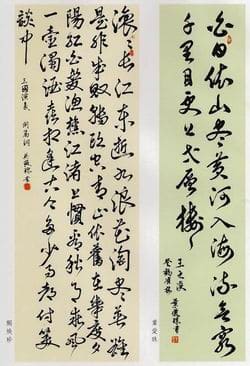 白日依山尽黄河入海流欲穷
千里目更上一层楼
王之涣
滚滚长江东逝水浪花淘尽英雄
是非成败转头空青山依旧在几度夕
阳红白发渔樵江渚上惯看秋月春风
一壶浊酒喜相逢古今多少事都付笑
谈中
三國演義 開篇詞